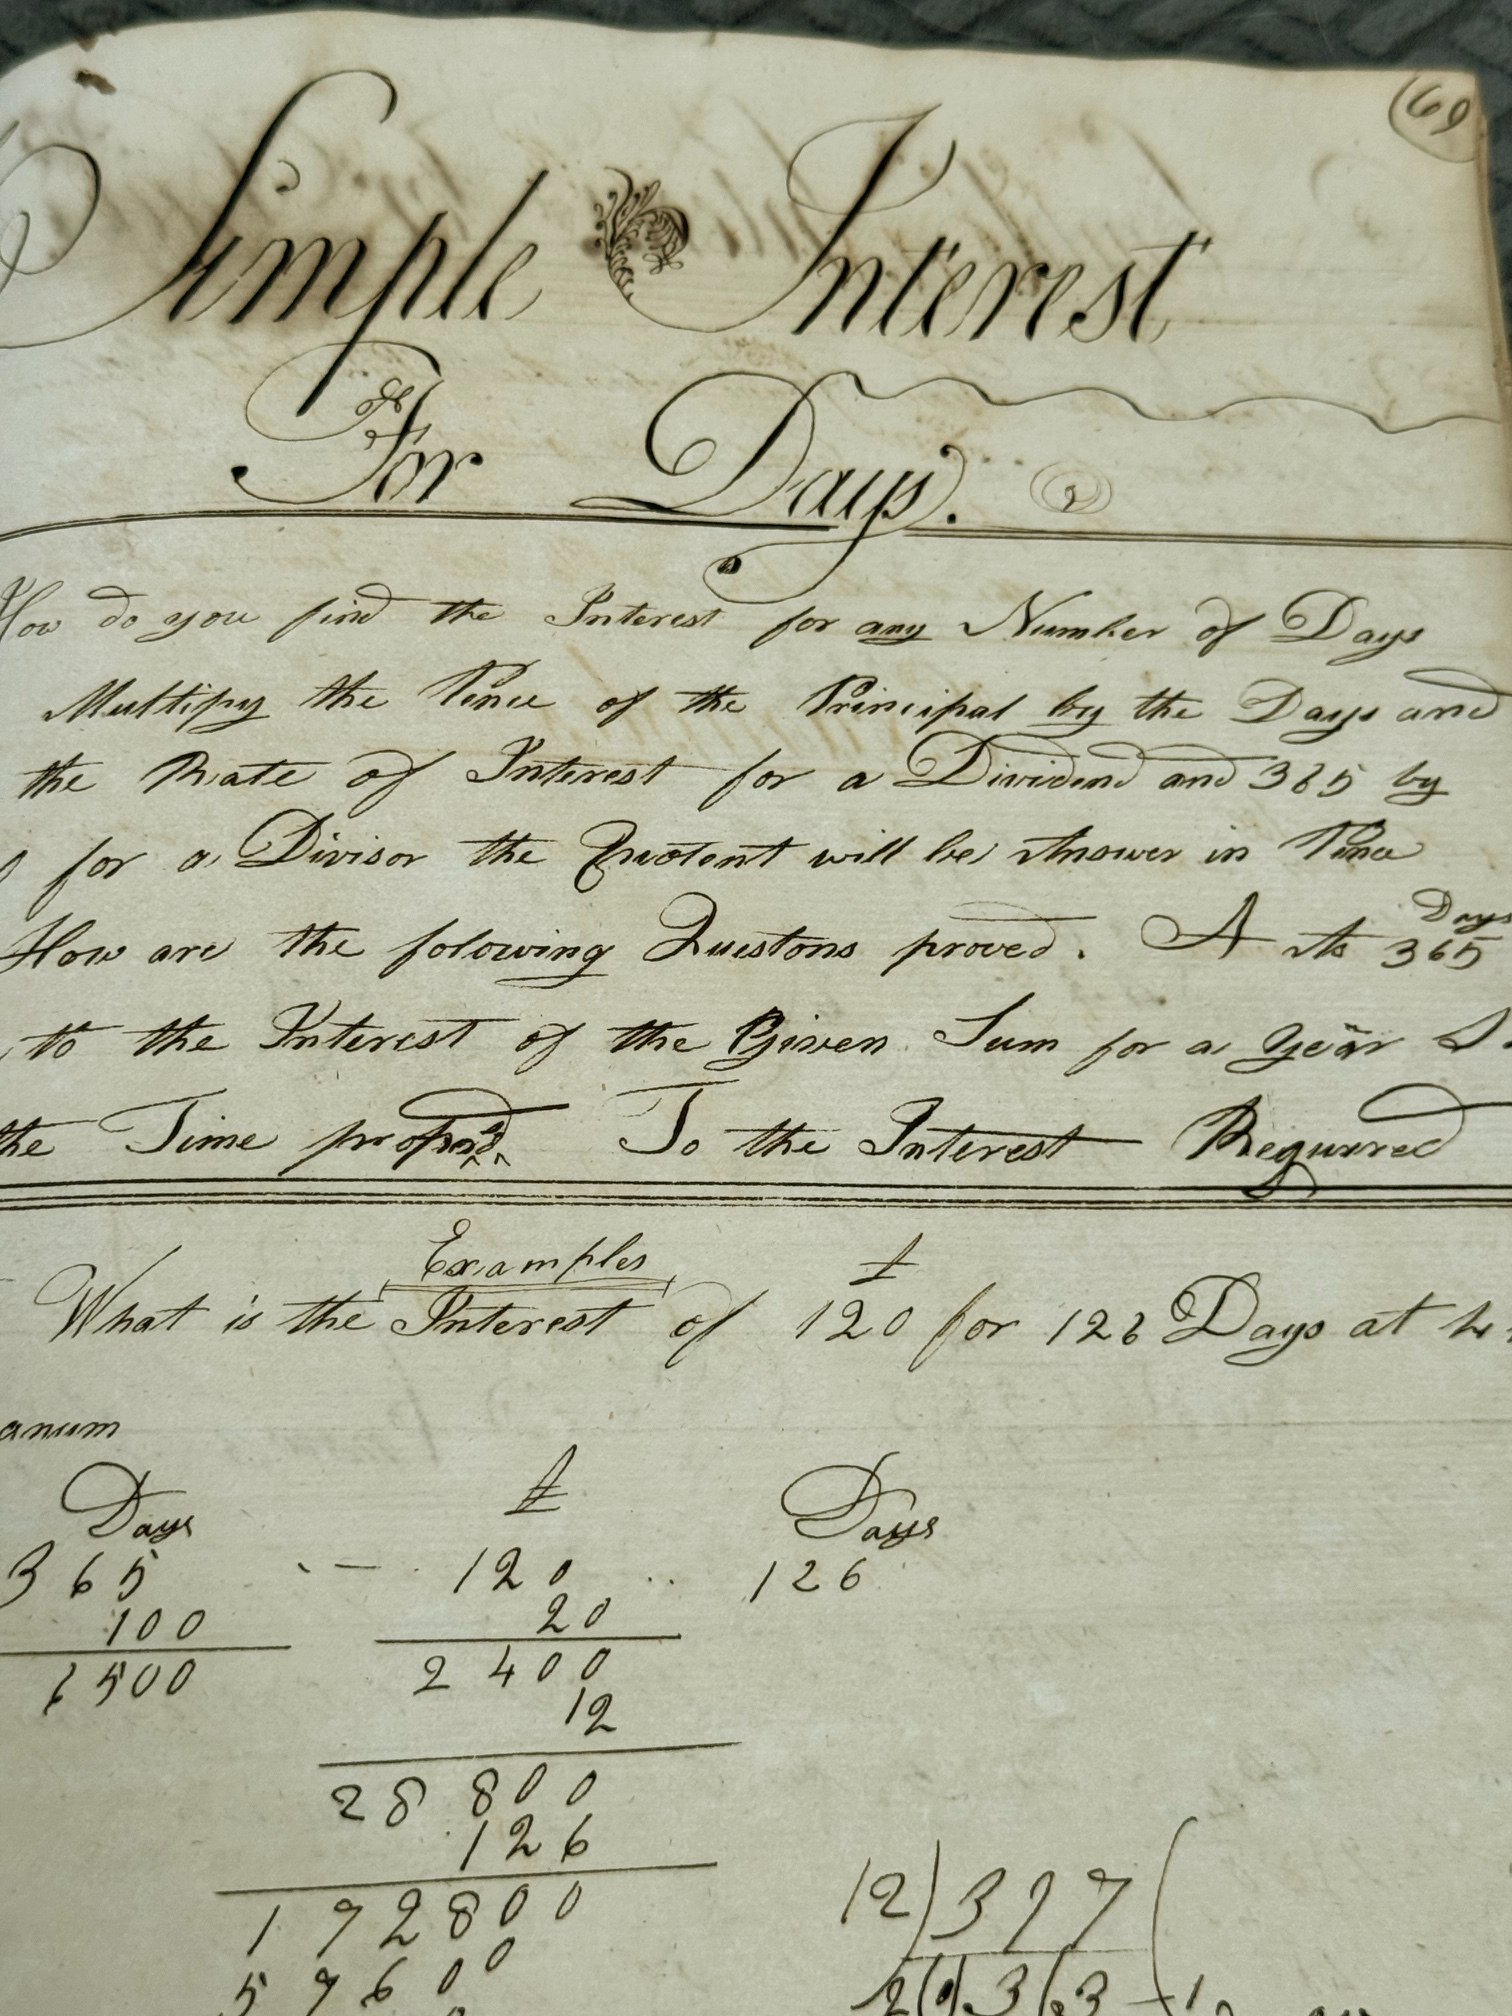 69
Simple Interest
For Days.
How do you find the Interest for any Number of Days
Multiply the Pence of the Principal by the Days and
the Rate of Interest for a Dividend and 365 by
for a Divisor the Quotent will be Answer in Pence
How are the folowing Questons proved. A As 365 Days
to the Interest of the Given Sum for a Year S.
the Time propos'd. To the Interest Requrred
Examples
What is the Interest of £120 for 126 Days at 4
anum
Days £ Days
365 120 126
100 20
6500 2400
12
28800
126
172800 12)397(
57600